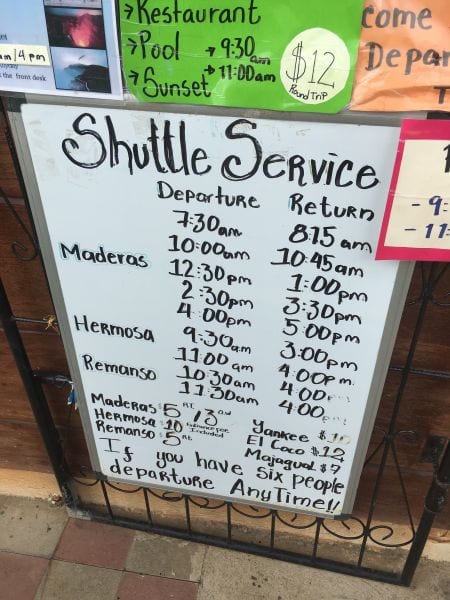 am/4pm
the front desk
Restaurant
→Pool → 9:30 am
→Sunset → 11:00am
$12
Round Trip
come
Depar
Shuttle Service
Departure Return
7:30am 8:15 am
10:00am 10:45am
Maderas 12:30pm 1:00pm
2:30pm 3:30pm
4:00pm 5:00pm
Hermosa 9:30am 3:00pm
11:00am 4:00pm
Remanso 10:30am 4:00
11:30am 4:00
Maderas $5 RT /3 ow
Hermosa $10 Entrance fee Included
Remanso $5 RT
Yankee $10
El Coco $12
Majagual $7
If you have six people
departure AnyTime!!
- 9:
- 11: